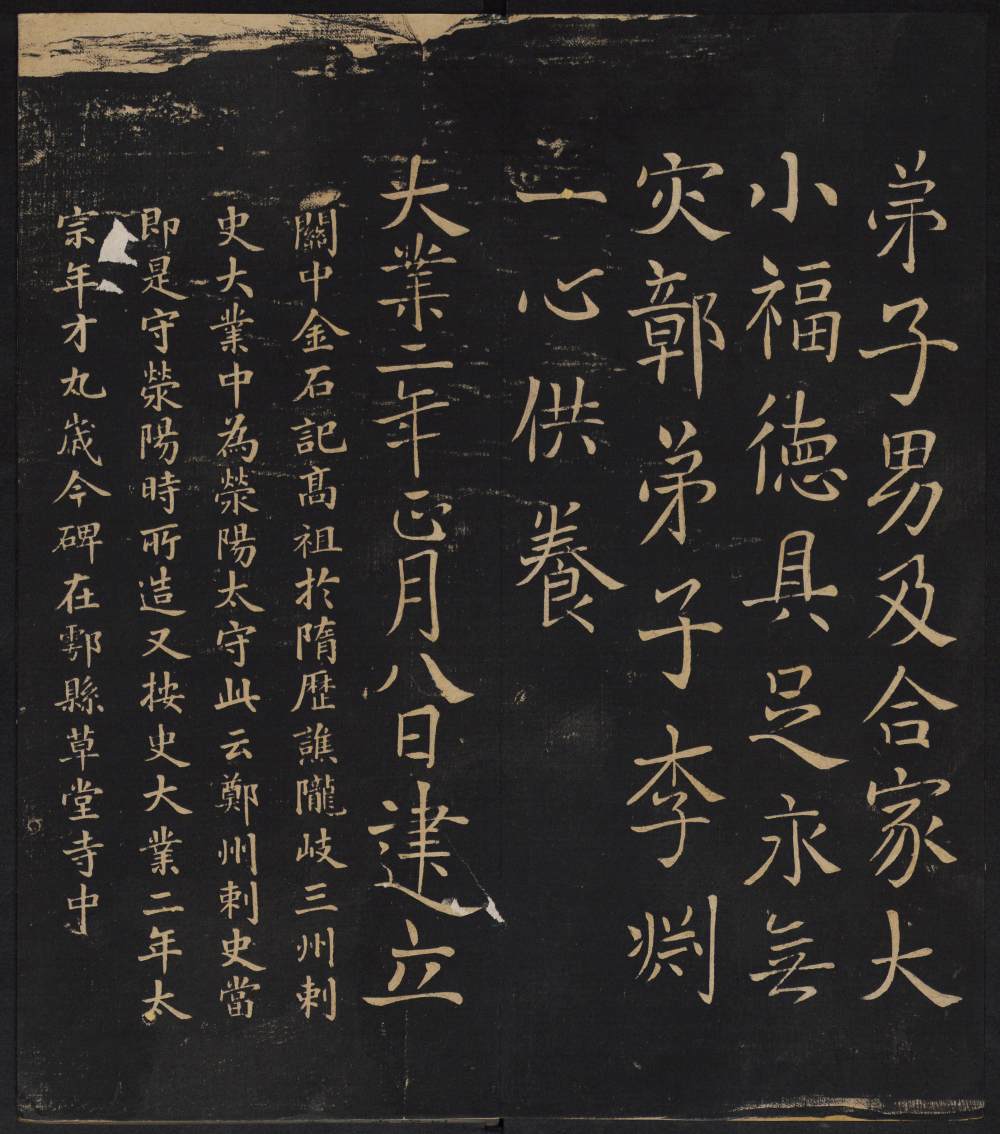 弟子男及合家大
小福德具足永無
灾鄣弟子李渕
一心供養
大業二年正月八日建立
關中金石記髙祖於隋歷譙隴岐三州刺
史大業中為滎陽太守此云鄭州刺史當
即是守滎陽時所造又按史大業二年太
宗年才九歲今碑在鄠縣草堂寺中